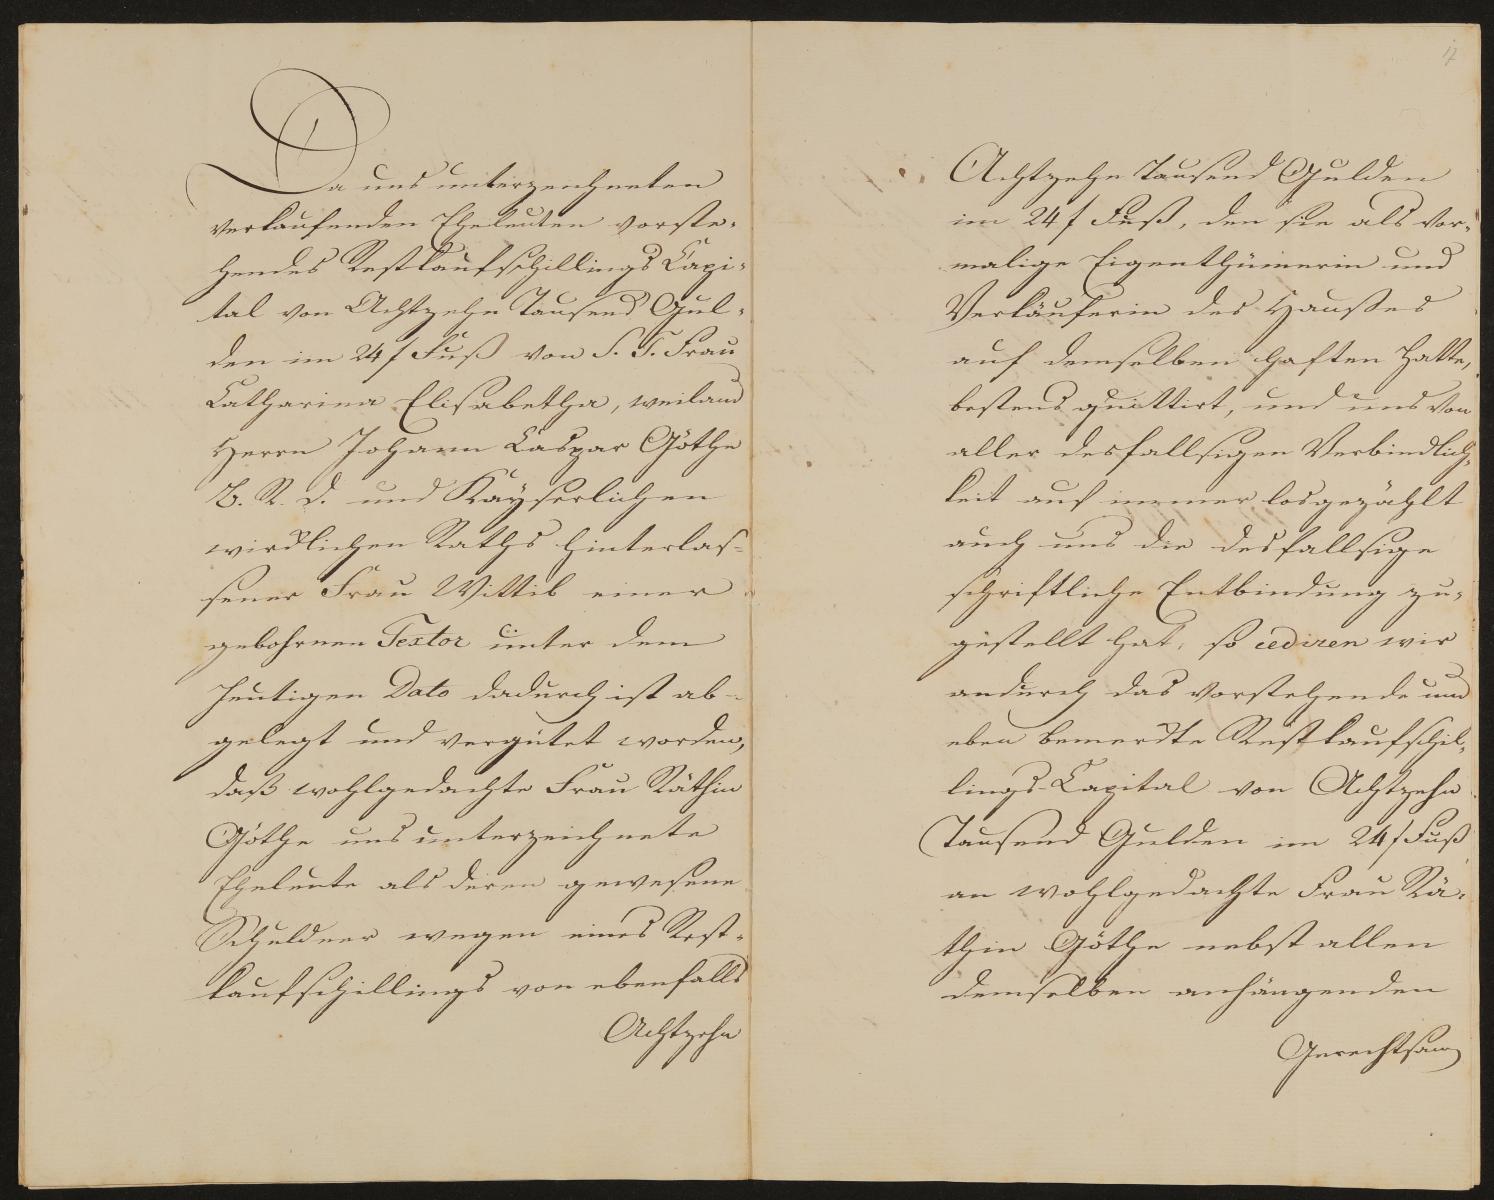 Da uns unterzeichneten
verkaufenden Eheleuten vorste-
hendes Restkaufschillings Capi-
tal von Achtzehn Tausend Gul-
den im 24 f Fuß von S. T. Frau
Catharina Elisabetha, weiland
Herrn Johann Caspar Göthe
B. R. D. und Kayserlichen
wircklichen Raths hinterlas-
sener Frau Wittib einer
gebohrnen Textor unter dem
heutigen Dato dadurch ist ab-
gelegt und vergütet worden,
daß wohlgedachte Frau Räthin
Göthe uns unterzeichnete
Eheleute als deren gewesene
Schuldner wegen eines Rest-
kaufschillings von ebenfalls
Achtzehn
17
Achtzehn Tausend Gulden
im 24 f Fuß, den sie als vor-
malige Eigenthümerin und
Verkäuferin des Haußes
auf demselben haften hatte,
bestens quittirt, und uns von
aller desfallsigen Verbindlich-
keit auf immer losgezählt
auch uns die desfallsige
schriftliche Entbindung zu-
gestellt hat, so cediren wir
andurch das vorstehende und
eben bemerckte Restkaufschil-
lings-Capital von Achtzehn
Tausend Gulden im 24 f Fuß
an wohlgedachte Frau Rä-
thin Göthe nebst allen
demselben anhängenden
Gerechtsam